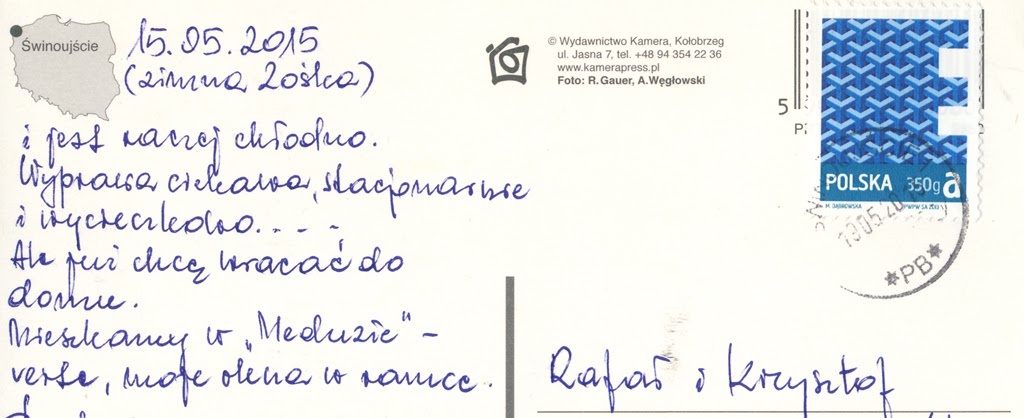 Świnoujście
15.05.2015
(zimna Zośka)
i jest raczej chłodno.
Wyprawa ciekawa, stacjonarnie
i wycieczkowo. . . .
Ale już chcę wracać do
domu.
Mieszkamy w „Meduzie" –
verte, moje okna w ramce.
© Wydawnictwo Kamera, Kołobrzeg
ul. Jasna 7, tel. +48 94 354 22 36
www.kamerapress.pl
Foto: R. Gauer, A. Węgłowski
5
POLSKA 350g a
M. DĄBROWSKA PWPW SA 2013
*PB*
Rafał i Krzysztof